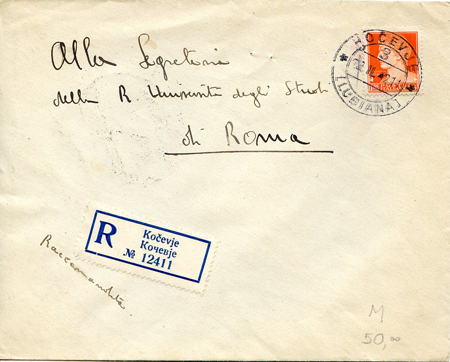 Alla Segreteria
della R. Università degli Studi
di Roma
KOČEVJE
3
(LUBIANA)
R
Kočevje
Кочевје
№ 12411
Raccomandata
M
50,00